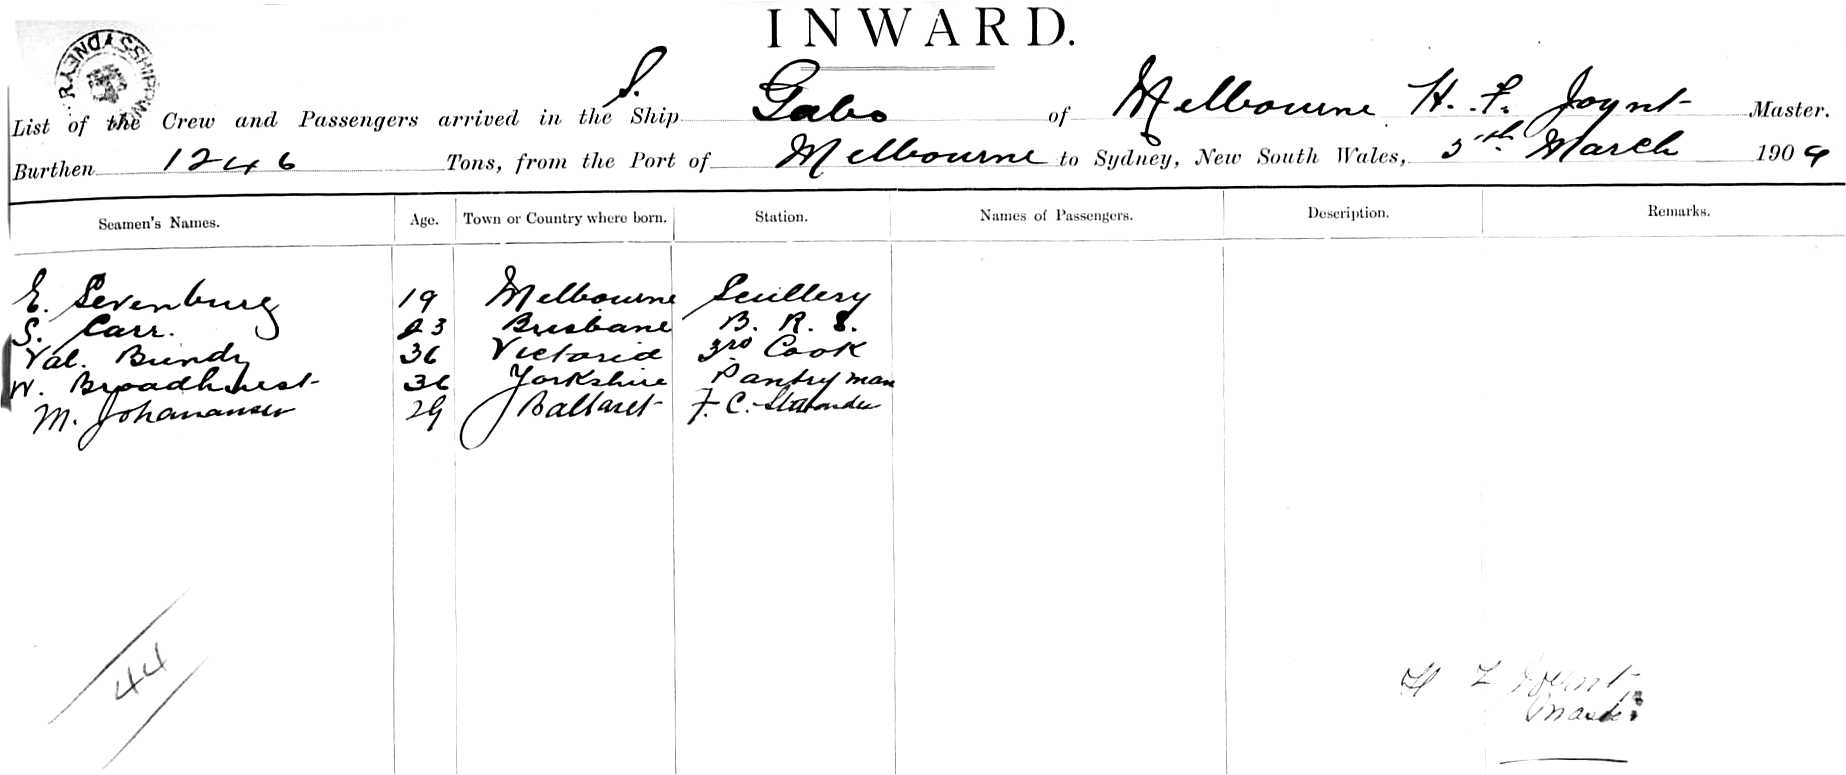 INWARD.
SYDNEY
List of the Crew and Passengers arrived in the S. Ship Gabo of Melbourne H. F. Joynt Master.
Burthen 1246 Tons, from the Port of Melbourne to Sydney, New South Wales, 5th March 1904
Seamen's Names. Age. Town or Country where born. Station. Names of Passengers. Description. Remarks.
E. Sevenburg 19 Melbourne Scullery
S. Carr. 23 Brisbane B. R. S.
Val. Bundy 36 Victoria 3rd Cook
W. Broadhurst 36 Yorkshire Pantryman
M. Johanansen 29 Ballarat F. C. Stewardess
44
H F Joynt
Master